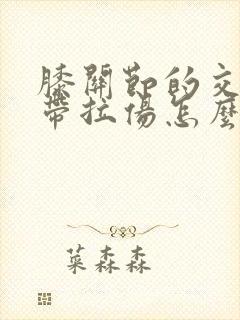 膝關節的交
帶拉傷怎麼
菜森森